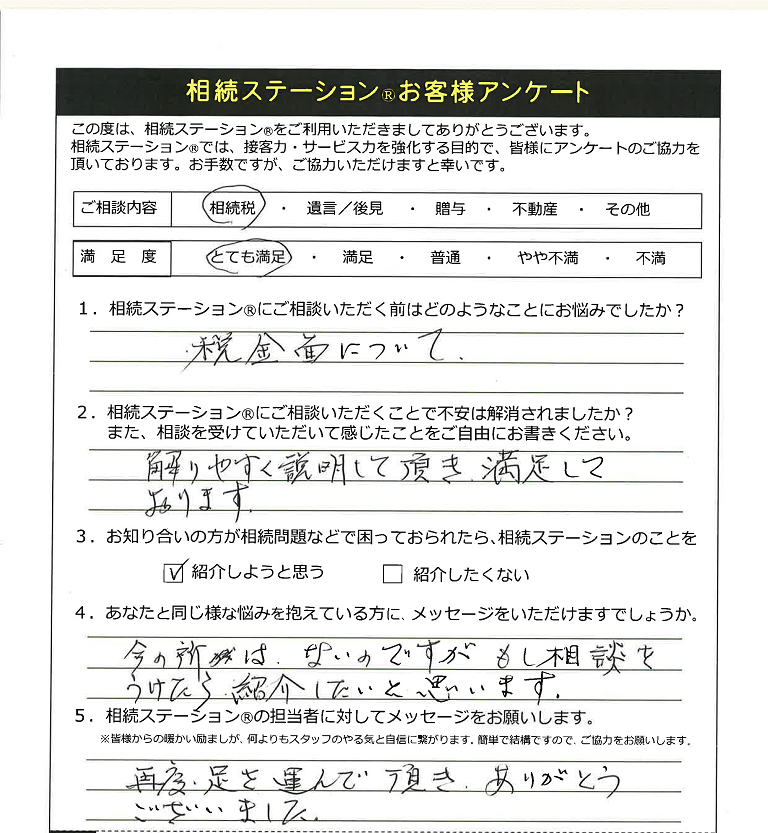 相続ステーション®お客様アンケート
この度は、相続ステーション®をご利用いただきましてありがとうございます。
相続ステーション®では、接客力・サービス力を強化する目的で、皆様にアンケートのご協力を
頂いております。お手数ですが、ご協力いただけますと幸いです。
ご相談内容 相続税 ・ 遺言／後見 ・ 贈与 ・ 不動産 ・ その他
満 足 度 とても満足 ・ 満足 ・ 普通 ・ やや不満 ・ 不満
1．相続ステーション®にご相談いただく前はどのようなことにお悩みでしたか？
税金面について.
2．相続ステーション®にご相談いただくことで不安は解消されましたか？
また、相談を受けていただいて感じたことをご自由にお書きください。
解りやすく説明して頂き、満足して
おります。
3．お知り合いの方が相続問題などで困っておられたら、相続ステーションのことを
☑ 紹介しようと思う □ 紹介したくない
4．あなたと同じ様な悩みを抱えている方に、メッセージをいただけますでしょうか。
今の所は、ないのですが もし相談を
うけたら、紹介したいと思いいます。
5．相続ステーション®の担当者に対してメッセージをお願いします。
※皆様からの暖かい励ましが、何よりもスタッフのやる気と自信に繋がります。簡単で結構ですので、ご協力をお願いします。
再度、足を運んで頂き、ありがとう
ございいました.